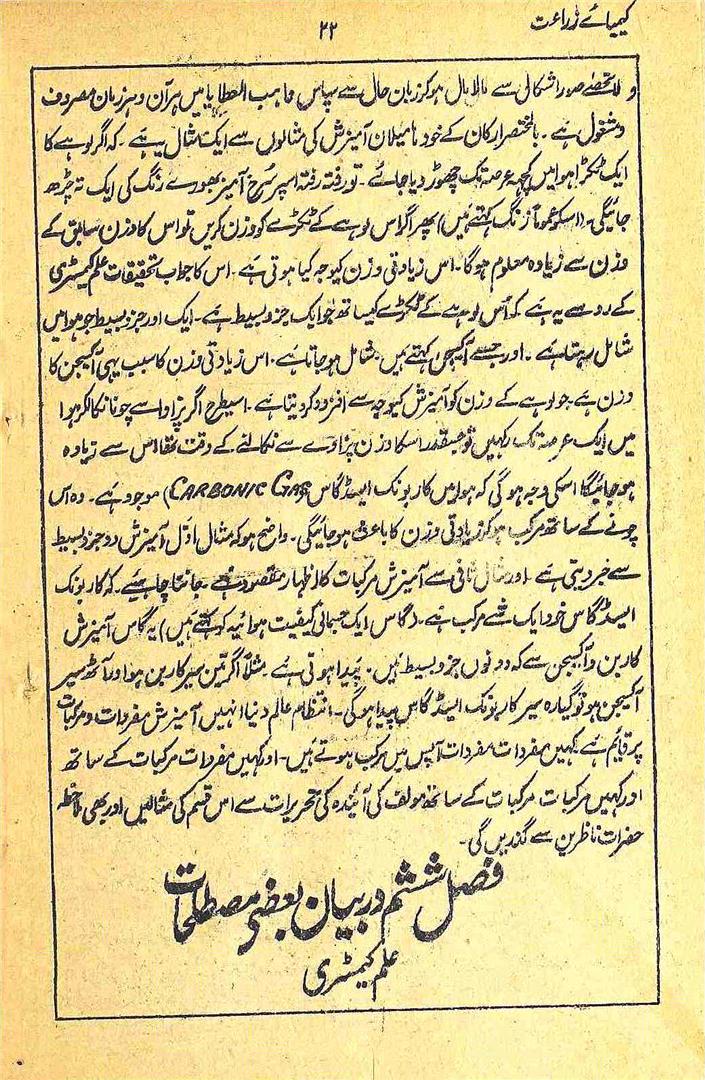 کیمیائے زراعت
۲۲
و لاتحصے صور اشکال سے مالا مال ہو کر زبان حال سے سپاس واہب العطایا میں ہر آن و ہر زمان مصروف
و مشغول ہے ۔ بالمختصر ارکان کے خود بامیلان آمیزش کی مثالوں سے ایک مثال یہ ہے ۔ کہ اگر لوہے کا
ایک ٹکڑا ہوا میں کچھ عرصہ تک چھوڑ دیا جائے ۔ تو رفتہ رفتہ اسپر سُرخ آمیز بھورے رنگ کی ایک تہ چڑھ
جائیگی ۔ (اسکو عموماً زنگ کہتے ہیں) پھر اگر اس لوہے کے ٹکڑے کو وزن کریں تو اس کا وزن سابق کے
وزن سے زیادہ معلوم ہوگا ۔ اس زیادتی وزن کیوجہ کیا ہوتی ہے ۔ اس کا جواب تحقیقات علم کیمسٹری
کے رو سے یہ ہے کہ اُس لوہے کے ٹکڑے کیساتھ جو ایک جزو بسیط ہے ۔ ایک اور جزو بسیط جو ہوا میں
شامل رہتا ہے ۔ اور جسے آکسیجن کہتے ہیں ۔ شامل ہو جاتا ہے ۔ اس زیادتی وزن کا سبب یہی آکسیجن کا
وزن ہے جو لوہے کے وزن کو آمیزش کیوجہ سے افزود کر دیتا ہے ۔ اسیطرح اگر پزاوا سے چونا نکالکر ہوا
میں ایک عرصہ تک رکھیں تو جسقدر اسکا وزن پزاوے سے نکالنے کے وقت تھا اس سے زیادہ
ہو جائیگا اسکی وجہ ہوگی کہ ہوا میں کاربونک ایسڈ گاس (CARBONIC GAS) موجود ہے ۔ وہ اس
چونے کے ساتھ مرکب ہو کر زیادتی وزن کا باعث ہو جائیگی ۔ واضح ہو کہ مثال اوّل آمیزش دو جزو بسیط
سے خبر دیتی ہے اور مثال ثانی سے آمیزش مرکبات کا اظہار مقصود ہے ۔ جاننا چاہیے ۔ کہ کاربونک
ایسڈ گاس خود ایک شے مرکب ہے ۔ (گاس ایک جسمانی کیفیت ہوائیہ کو کہتے ہیں) یہ گاس آمیزش
کاربن و آکسیجن سے کہ دونوں جزو بسیط ہیں ۔ پیدا ہوتی ہے مثلاً اگر تین سیر کاربن ہو اور آٹھ سیر
آکسیجن ہو تو گیارہ سیر کاربونک ایسڈ گاس پیدا ہوگی ۔ انتظام عالم دنیا انہیں آمیزش مفردات و مرکبات
پر قایٔم ہے کہیں مفردات مفردات آپس میں مرکب ہوتے ہیں ۔ اور کہیں مفردات مرکبات کے ساتھ
اور کہیں مرکبات مرکبات کے ساتھ مولف کی آئندہ کی تحریرات سے اس قسم کی مثالیں اور بھی ملاحظہ
حضرات ناظرین سے گذریں گی ۔
فصل ششم در بیان بعضے مصطلحات
علم کیمسٹری